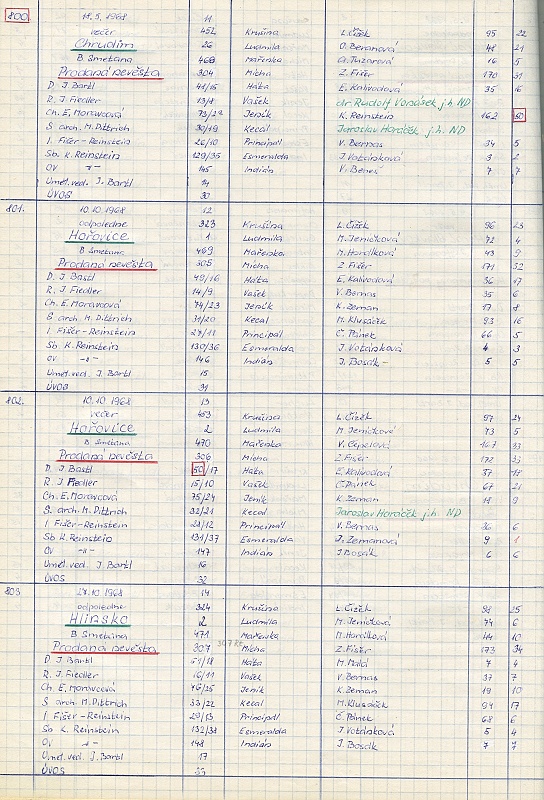 800 18.5.1968 11
večer 452 Krušina L. Čížek 95 22
Chrudim 26 Ludmila O. Beranová 48 21
B. Smetana 468 Mařenka A. Tuzarová 16 5
Prodaná nevěsta 304 Mícha Z. Fišer 170 31
D. J. Bartl 41/15 Háta E. Kalivodová 35 16
R. J. Fiedler 13/8 Vašek dr. Rudolf Vonásek j.h. ND
Ch. E. Moravcová 73/22 Jeník K. Reinstein 162 50
S arch. M. Dittrich 30/19 Kecal Jaroslav Horáček j.h. ND
I. Fišer-Reinstein 26/10 Principál V. Bernas 34 5
Sb. K. Reinstein 129/35 Esmeralda J. Votánková 3 2
OV -"- 145 Indián V. Beneš 7 7
Uměl. ved. J. Bartl 14
ÚVOS 30
801. 10.10.1968 12
odpoledne 323 Krušina L. Čížek 96 23
Hořovice 1 Ludmila M. Jeničková 72 4
B. Smetana 469 Mařenka M. Hordíková 43 9
Prodaná nevěsta 305 Mícha Z. Fišer 171 32
D. J. Bartl 49/16 Háta E. Kalivodová 36 17
R. J. Fiedler 14/9 Vašek V. Bernas 35 6
Ch. E. Moravcová 74/23 Jeník K. Zeman 17 8
S arch. M. Dittrich 31/20 Kecal M. Klusáček 93 16
I. Fišer-Reinstein 27/11 Principál Č. Pánek 66 5
Sb. K. Reinstein 130/36 Esmeralda J. Votánková 4 3
OV -"- 146 Indián J. Bosák 5 5
Uměl. ved. J. Bartl 15
ÚVOS 31
802. 10.10.1968 13
večer 453 Krušina L. Čížek 97 24
Hořovice 2 Ludmila M. Jeničková 73 5
B. Smetana 470 Mařenka V. Cepelová 33
Prodaná nevěsta 306 Mícha Z. Fišer 172 33
D. J. Bartl 50/17 Háta E. Kalivodová 37 18
R. J. Fiedler 15/10 Vašek Č. Pánek 67 21
Ch. E. Moravcová 75/24 Jeník K. Zeman 18 9
S. arch. M. Dittrich 32/21 Kecal Jaroslav Horáček j.h. ND
I Fišer-Reinstein 28/12 Principál V. Bernas 36 6
Sb K. Reinstein 131/37 Esmeralda J. Zemanová 9 1
OV -"- 147 Indián J. Bosák 6 6
Uměl. ved. J. Bartl 16
ÚVOS 32
803 27.10.1968 14
odpoledne 324 Krušina L. Čížek 98 25
Hlinsko 2 Ludmila M. Jeničková 74 6
B Smetana 471 Mařenka M. Hordíková 44 10
Prodaná nevěsta 307 Mícha Z. Fišer 173 34
D. J. Bartl 51/18 Háta M. Malá 7 4
R. J. Fiedler 16/11 Vašek V. Bernas 37 7
Ch. E. Moravcová 76/25 Jeník K. Zeman 19 10
S arch. M. Dittrich 33/22 Kecal M. Klusáček 94 17
I Fišer-Reinstein 29/13 Principál Č. Pánek 68 6
Sb K. Reinstein 132/38 Esmeralda J. Votánková 5 4
OV -"- 148 Indián J. Bosák 7 7
Uměl. ved. J. Bartl 17
ÚVOS 33